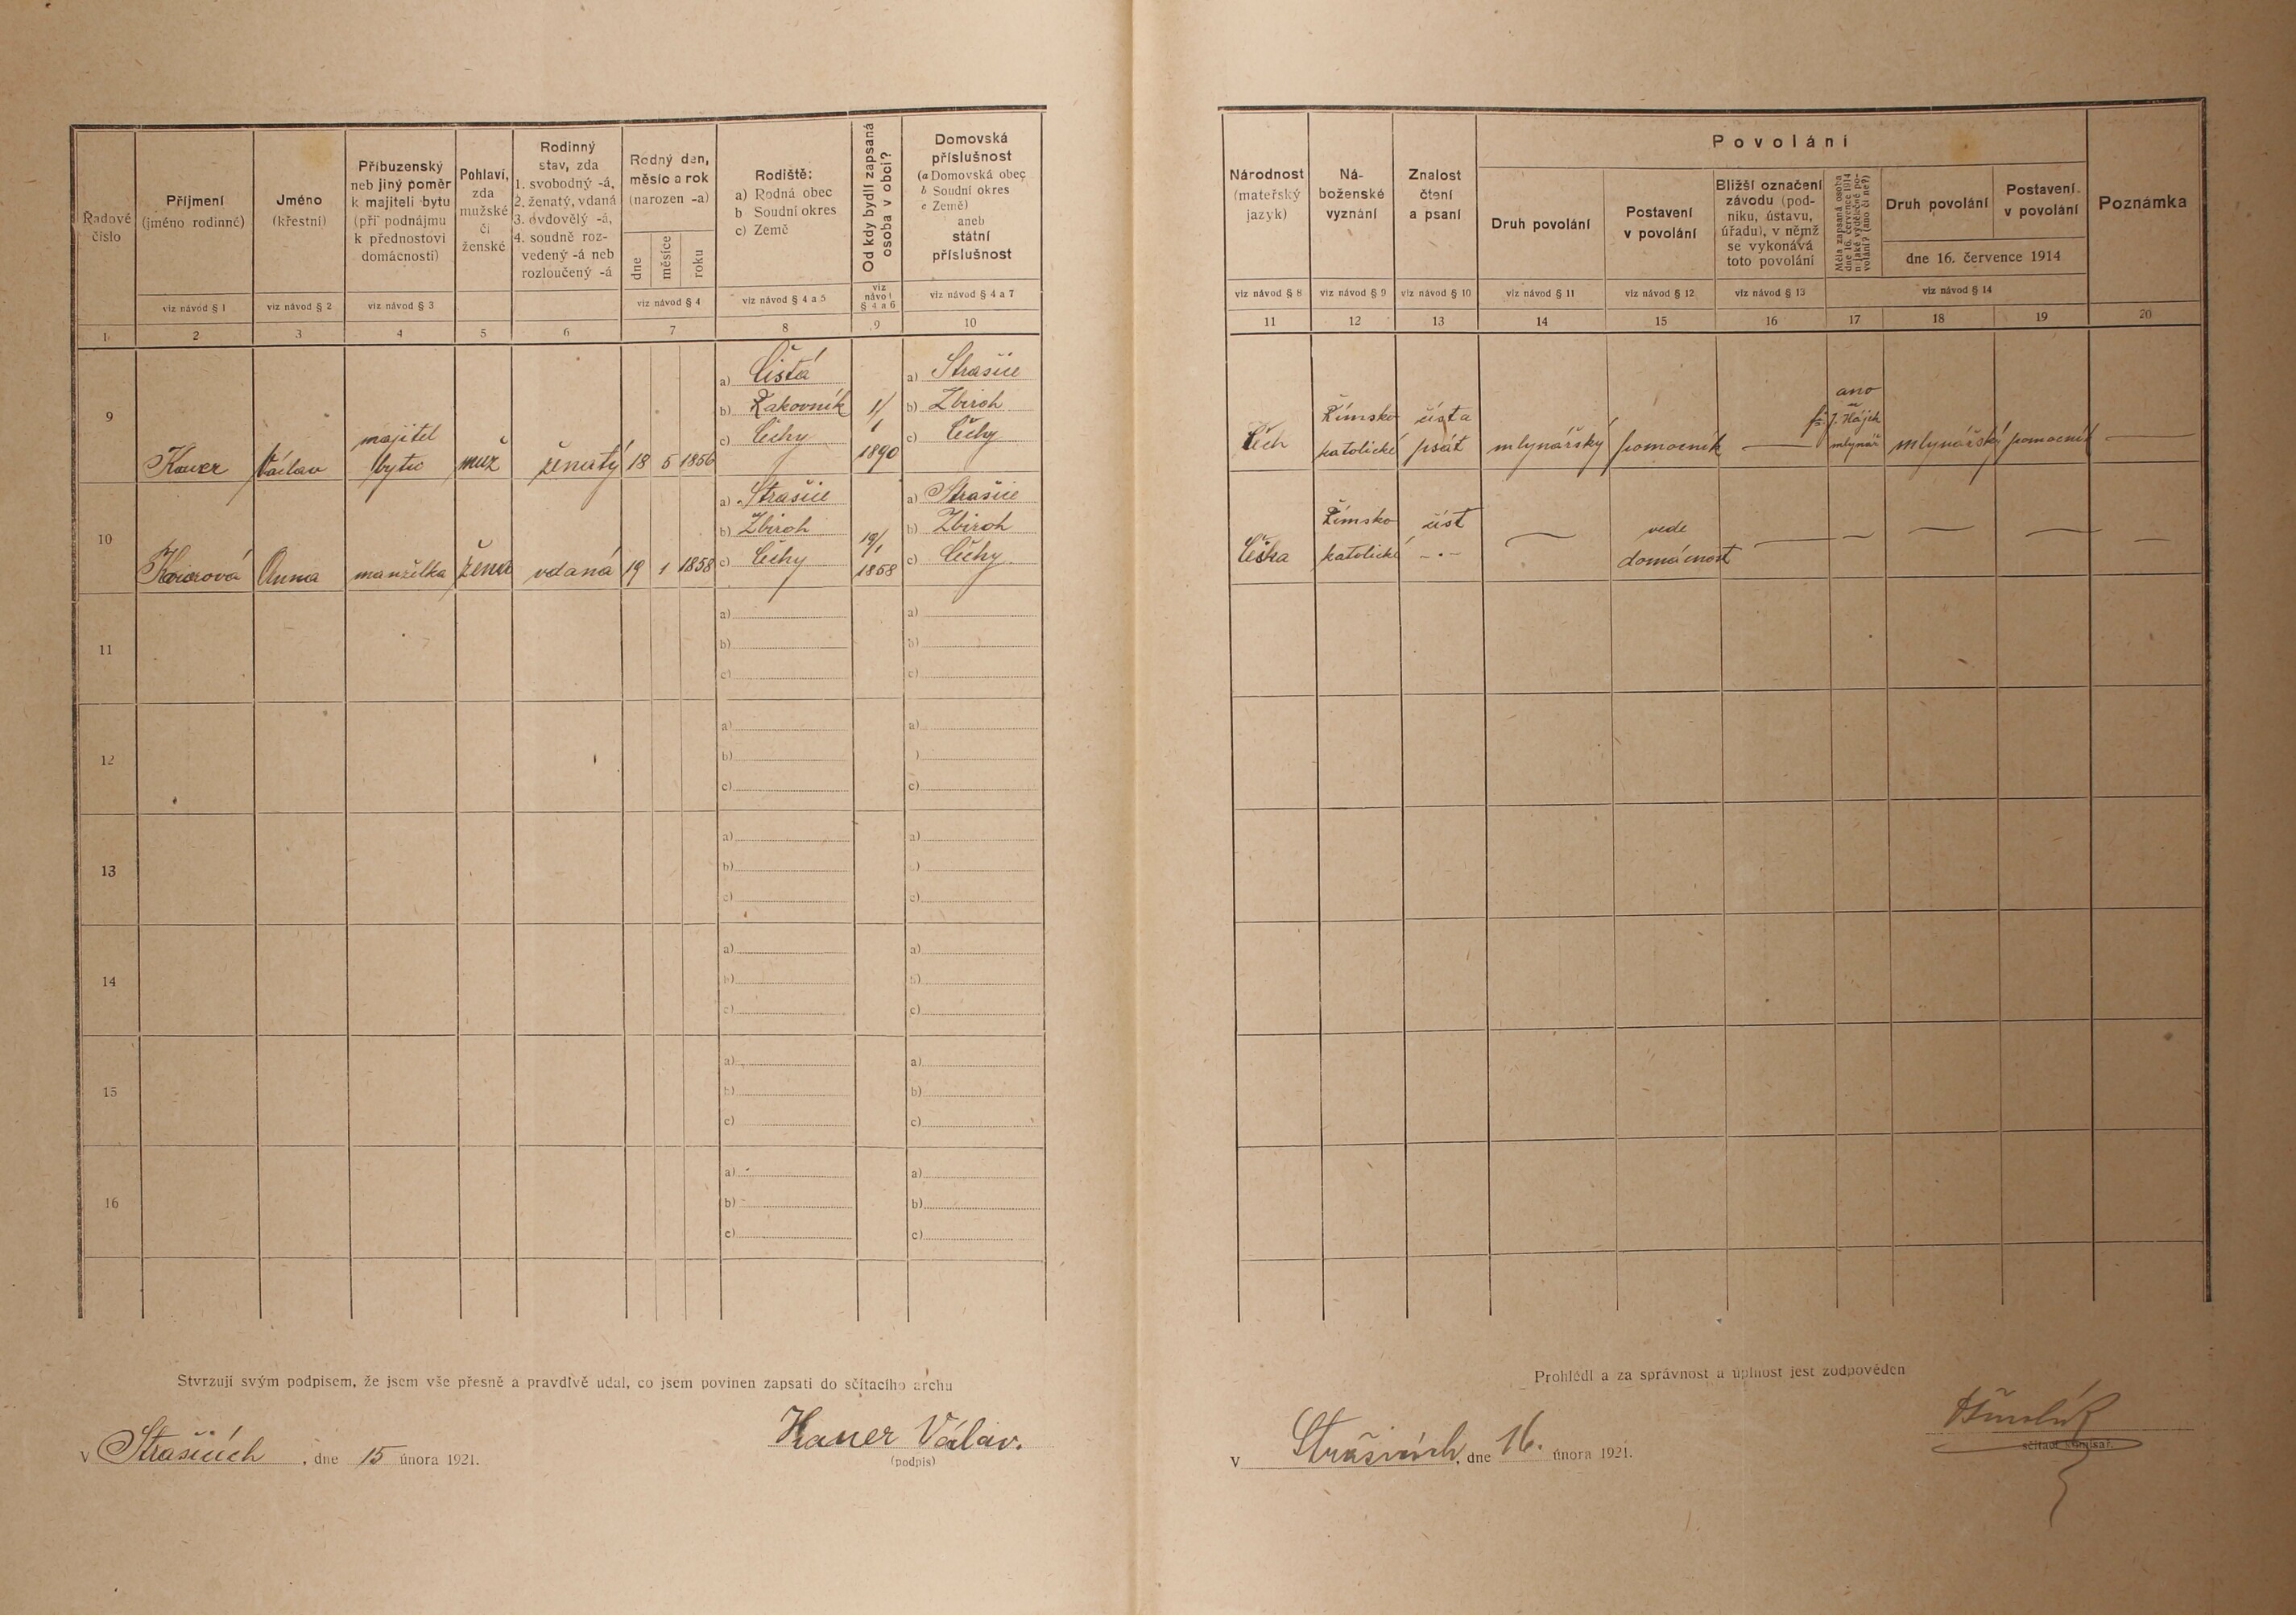 Řadové číslo
Příjmení
(jméno rodinné)
viz návod § 1
Jméno
(křestní)
viz návod § 2
Příbuzenský
neb jiný poměr
k majiteli bytu
(při podnájmu
k přednostovi
domácnosti)
viz návod § 3
Pohlaví,
zda
mužské
či
ženské
Rodinný
stav, zda
1. svobodný -á,
2. ženatý, vdaná
3. ovdovělý -á,
4. soudně roz-
vedený -á neb
rozloučený -á
Rodný den,
měsíc a rok
(narozen -a)
dne
měsíce
roku
viz návod § 4
Rodiště:
a) Rodná obec
b Soudní okres
c) Země
viz návod § 4 a 5
Od kdy bydlí zapsaná
osoba v obci?
viz
návod
§ 4 a 6
Domovská
příslušnost
(a Domovská obec
b Soudní okres
c Země)
aneb
státní
příslušnost
viz návod § 4 a 7
Národnost
(mateřský
jazyk)
viz návod § 8
Ná-
boženské
vyznání
viz návod § 9
Znalost
čtení
a psaní
viz návod § 10
Povolání
Druh povolání
viz návod § 11
Postavení
v povolání
viz návod § 12
Bližší označení
závodu (pod-
niku, ústavu,
úřadu), v němž
se vykonává
toto povolání
viz návod § 13
Měla zapsaná osoba
dne 16. července 1914
nějaké výdělečné po-
volání? (ano či ne?)
Druh povolání
Postavení
v povolání
dne 16. července 1914
viz návod § 14
Poznámka
1 2 3 4 5 6 7 8 9 10 11 12 13 14 15 16 17 18 19 20
9
Kauer
Václav
majitel
bytu
muž
ženatý
18 5 1856
a) Čistá
b) Rakovník
c) Čechy
1/
1
1890
a) Strašice
b) Zbiroh
c) Čechy
Čech
Římsko
katolické
čísta
psát
mlynářský
pomocník
ano
J. Hájek
mlynář
mlynářský
pomocník
10
Kauerová
Anna
manželka
žena
vdaná
19 1 1858
a) Strašice
b) Zbiroh
c) Čechy
19/
1
1858
a) Strašice
b) Zbiroh
c) Čechy
Češka
Římsko
katolické
číst
-"-
vede
domácnost
11
a)
b)
c)
a)
b)
c)
12
a)
b)
c)
a)
)
c)
13
a)
b)
c)
a)
b)
c)
14
a)
b)
c)
a)
b)
c)
15
a)
b)
c)
a)
b)
c)
16
a)
b)
c)
a)
b)
c)
Stvrzuji svým podpisem, že jsem vše přesně a pravdivě udal, co jsem povinen zapsati do sčítacího archu
v Strašicích, dne 15 února 1921.
Kauer Válav.
(podpis)
Prohlédl a za správnost a úplnost jest zodpověden
v Strašicích, dne 16. února 1921.
sčítací komisař.